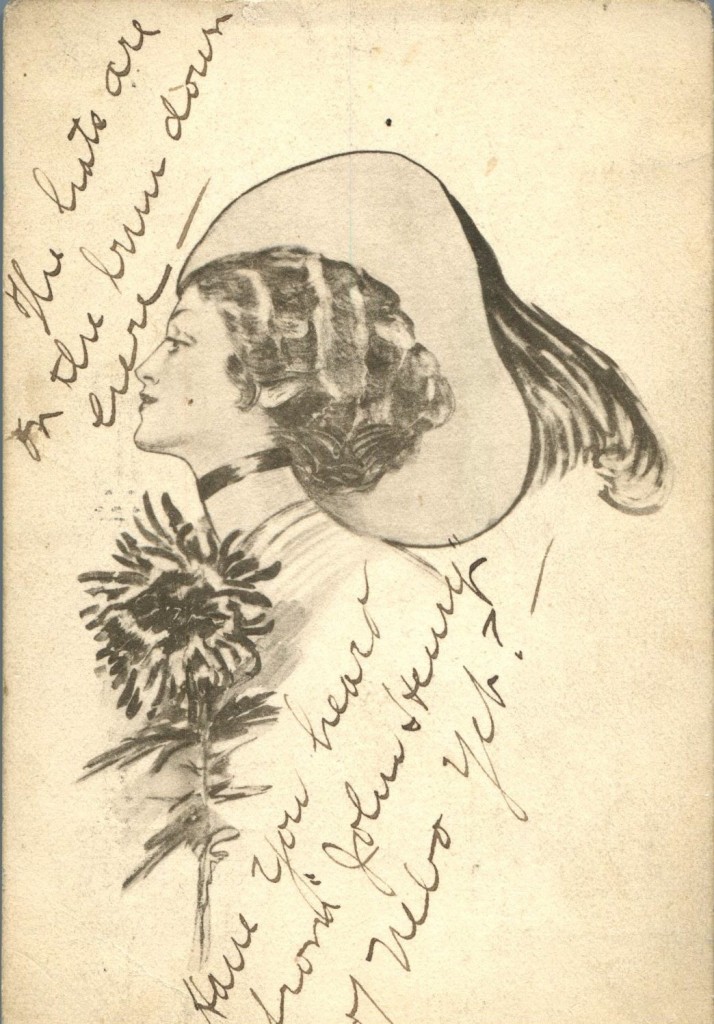 The hats are
on the brim down
here —
Have you heard
from "John Henry"
of Nebo Yet? —